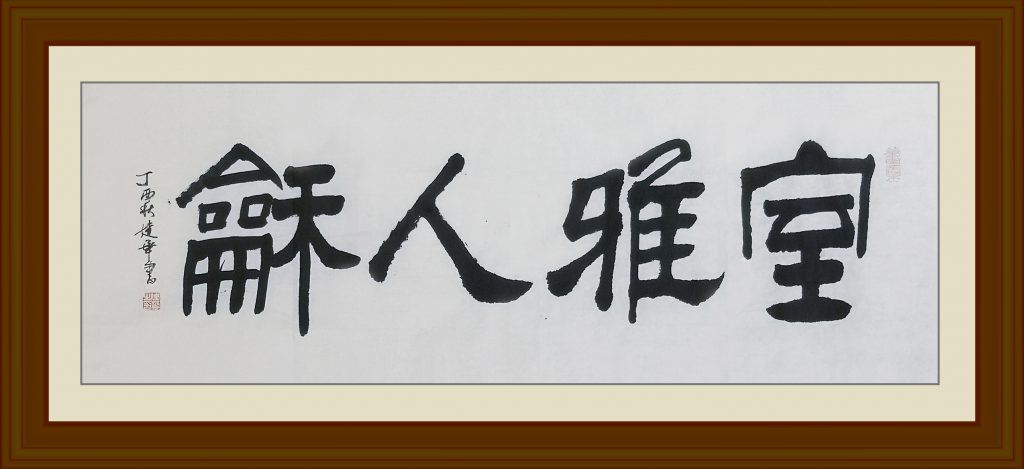 室雅人龢
丁酉秋建華書